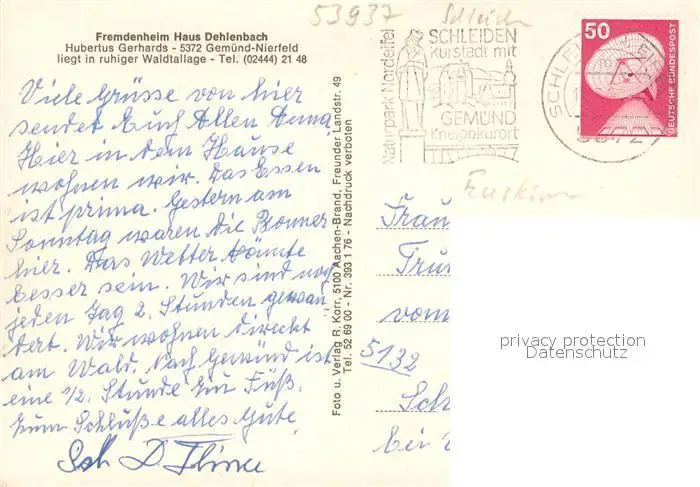 53937 Schleiden
Fremdenheim Haus Dehlenbach
Hubertus Gerhards - 5372 Gemünd-Nierfeld
liegt in ruhiger Waldtallage - Tel. (02444) 21 48
Viele Grüsse von hier
sendet Euch Allen Anna
Hier in dem Hause
wohnen wir. Das Essen
ist prima. Gestern am
Sonntag waren die Bonner
hier. Das Wetter könnte
besser sein. Wir sind noch
jeden Tag 2. Stunden gewan
dert. Wir wohnen direckt
am Wald. Nach Gemünd ist
eine 1/2. Stunde zu Fuß.
zum Schluße alles Gute
Foto u. Verlag R. Korr, 5100 Aachen-Brand, Freunder Landstr. 49
Tel. 52 69 00 - Nr. 393 1 76 - Nachdruck verboten
Naturpark Nordeifel
SCHLEIDEN
Kurstadt mit
GEMÜND
Kneippkurort
SCHLEIDEN
5372
50
DEUTSCHE BUNDESPOST
Frau
vom
5132
privacy protection
Datenschutz